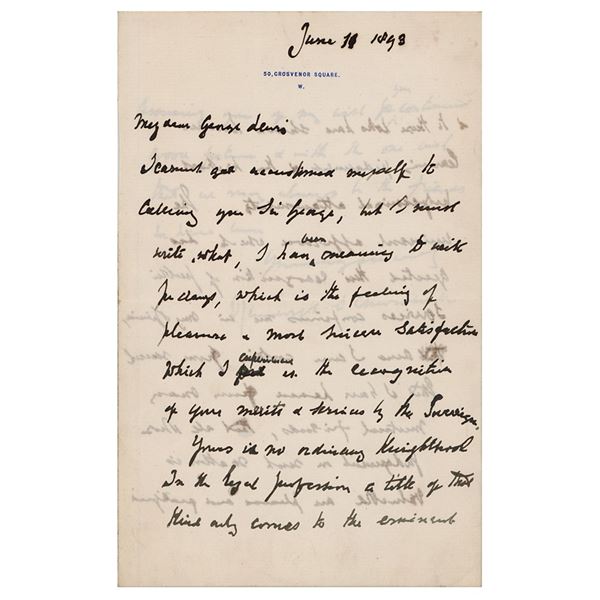 June 11 1893
50, GROSVENOR SQUARE.
W.
My dear George Lewis
I cannot get accustomed myself to
Calling you Sir George, but I must
write, what, I have been meaning to write
for days, which is the feeling of
pleasure & most sincere satisfaction
which I experience in the recognition
of your merits & services by the Sovereign.
Yours is no ordinary Knighthood
In the legal profession a title of that
kind only comes to the eminent